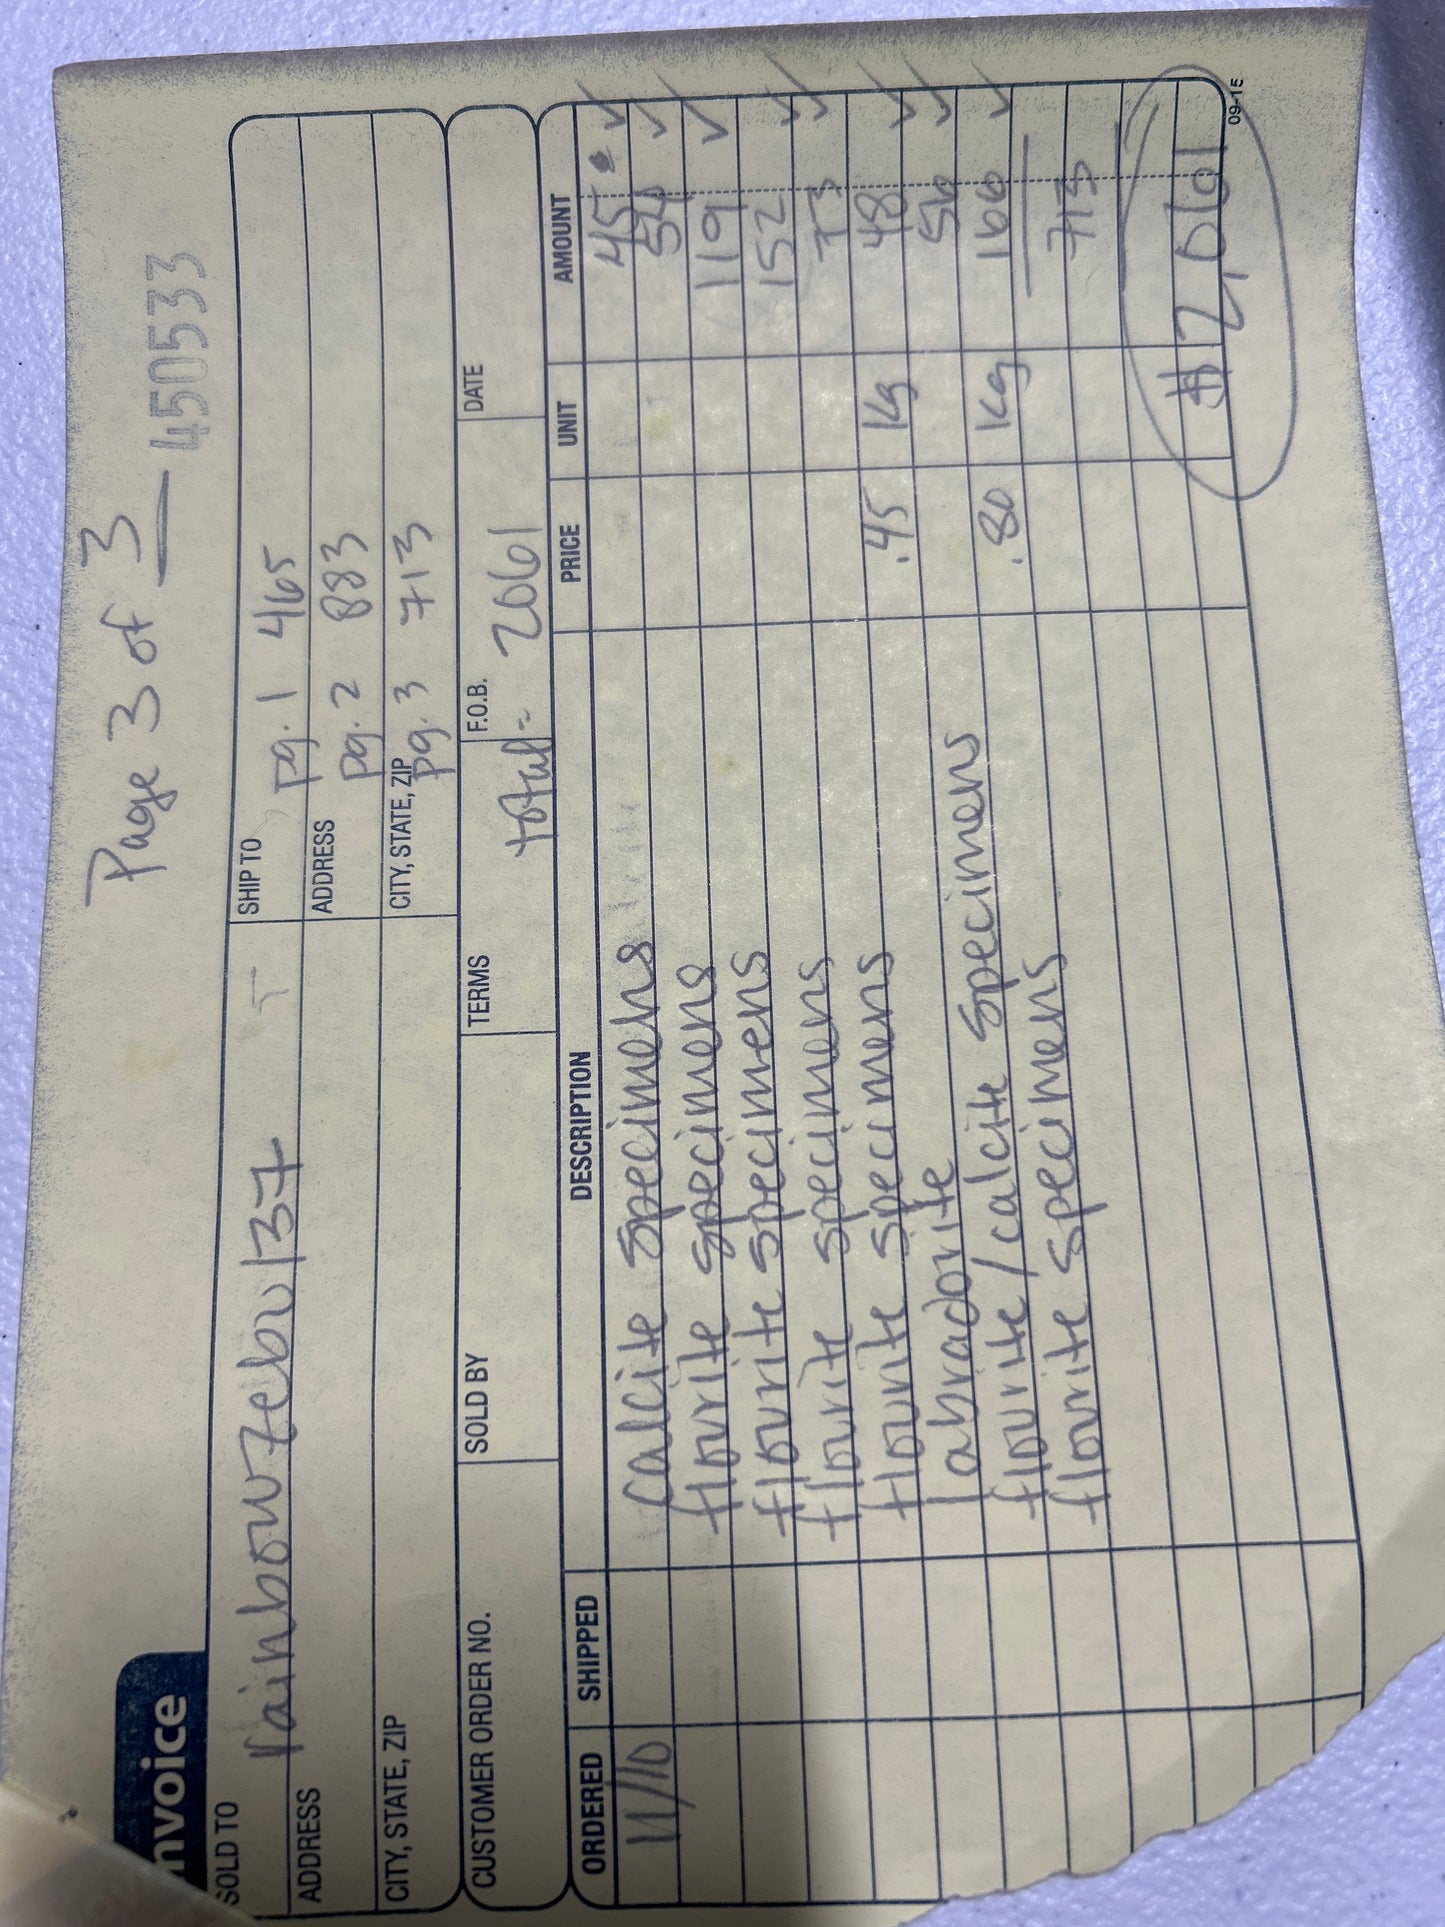 Page 3 of 3
nvoice
450533
SOLD TO rainbowzebu137
SHIP TO pg. 1 465
ADDRESS
ADDRESS pg. 2 883
CITY, STATE, ZIP
CITY, STATE, ZIP pg. 3 713
CUSTOMER ORDER NO. SOLD BY TERMS F.O.B. DATE
total = 2061
ORDERED SHIPPED DESCRIPTION PRICE UNIT AMOUNT
11/10 Calcite specimens 45
flourite specimens 54
flourite specimens 119
flourite specimens 152
flourite specimens 73
labradorite .45 Kg 48
flourite/calcite specimens 56
flourite specimens .80 Kg 166
713
$2,061
09-15